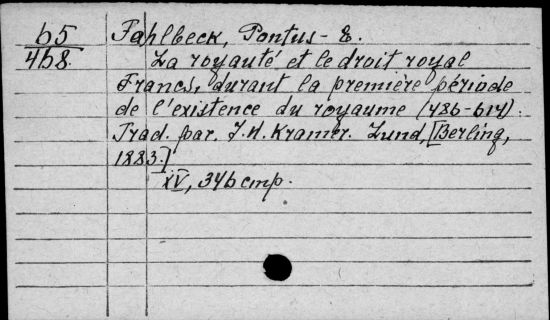 65 Fahlbeck, Pontus - E.
468. La royauté et le droit royal
Francs, durant la première période
de l'existence du royaume (486-614).
Trad. par. J. H. Kramer. Lund, [Berling,
1883.]
XV, 346 стр.